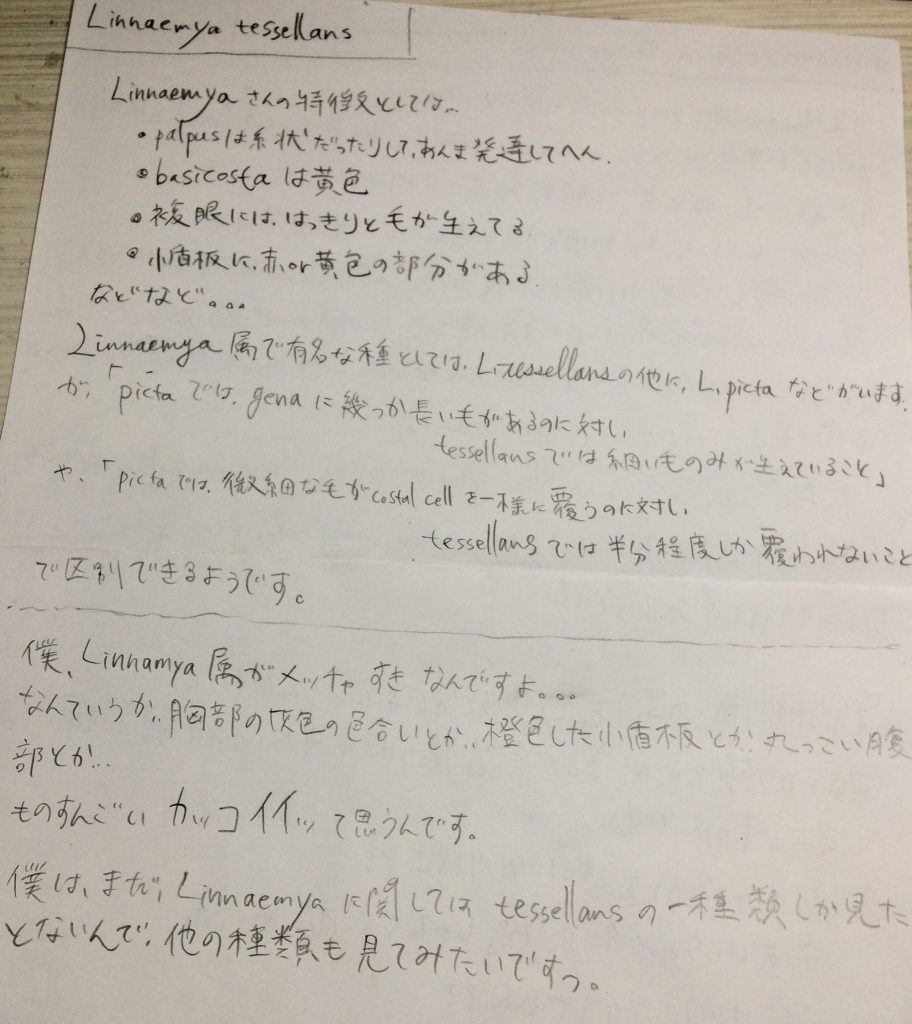 Linnaemya tessellans
Linnaemyaさんの特徴としては、、
・palpusは糸状だったりして、あんま発達してへん、
・basicostaは黄色
・複眼には、はっきりと毛が生えてる
・小盾板に、赤or黄色の部分がある
などなど。。。
Linnaemya属で有名な種としては、L.tessellansの他に、L.pictaなどがいます、
が、「pictaでは、genaに幾つか長い毛があるのに対し、
tessellansでは細いものみが生えていること」
や、「pictaでは、微細な毛がcostal cellを一様に覆うのに対し、
tessellansでは半分程度しか覆われないこと
で区別できるようです。
僕、Linnamya属がメッチャすきなんですよ。。。
なんていうか、、胸部の灰色の色合いとか、、橙色した小盾板とか、丸っこい腹
部とか、、
ものすんごいカッコイイッて思うんです。
僕は、まだ、Linnaemyaに関してはtessellansの一種類しか見た
とないんで、他の種類も見てみたいですっ。